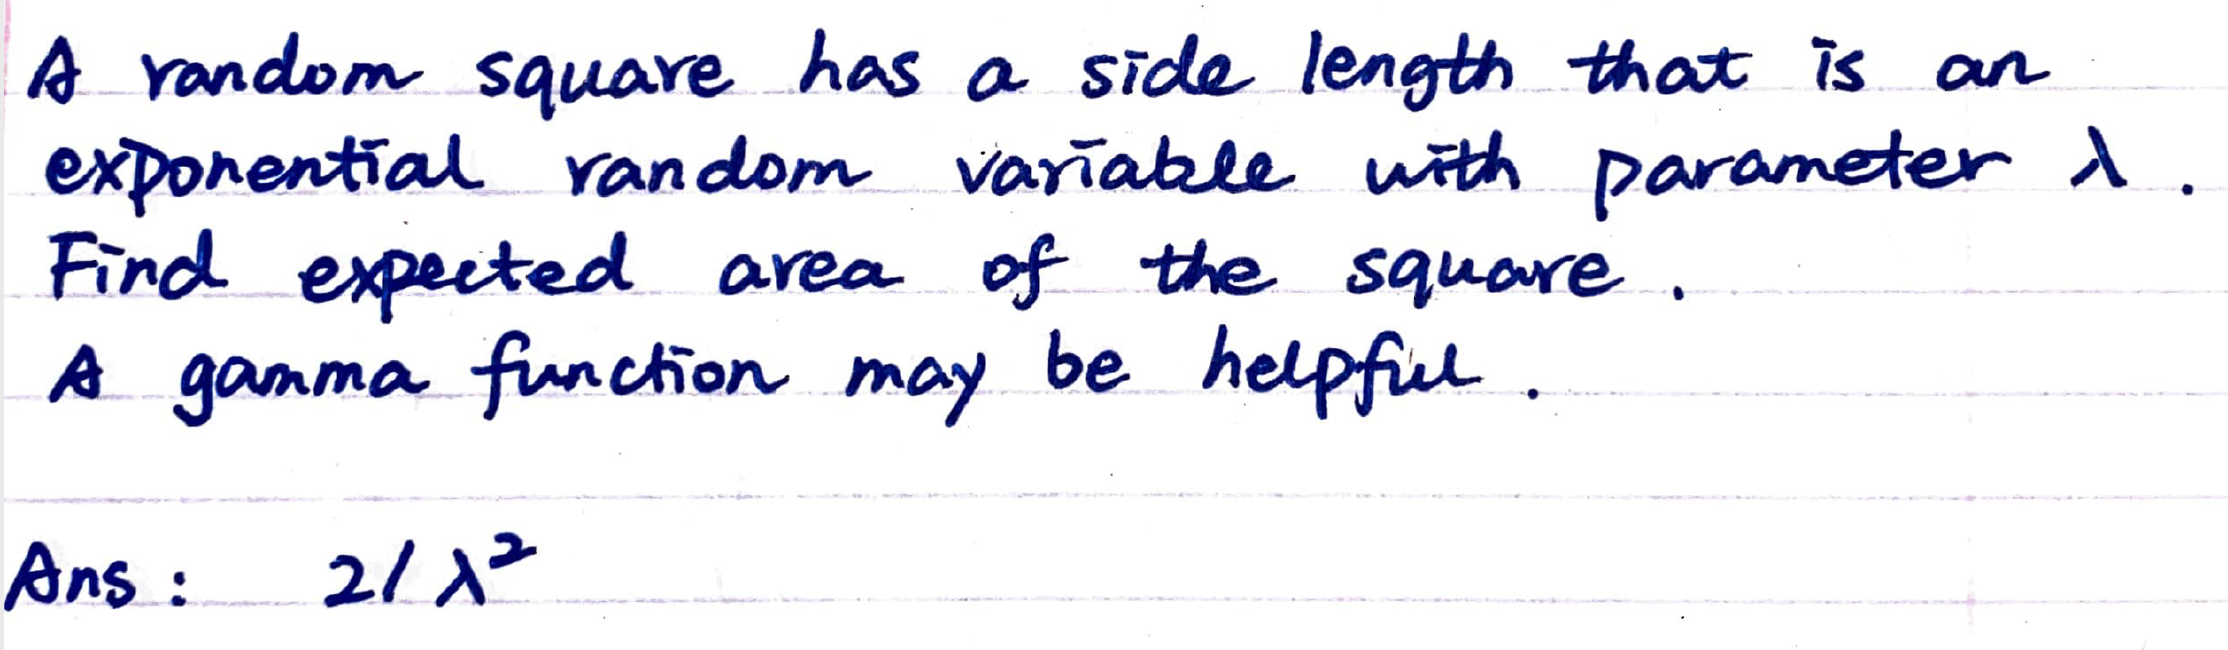 A random square has a side length that is an
exponential random variable with parameter λ.
Find expected area of the square.
A gamma function may be helpful.
Ans: 2/λ²